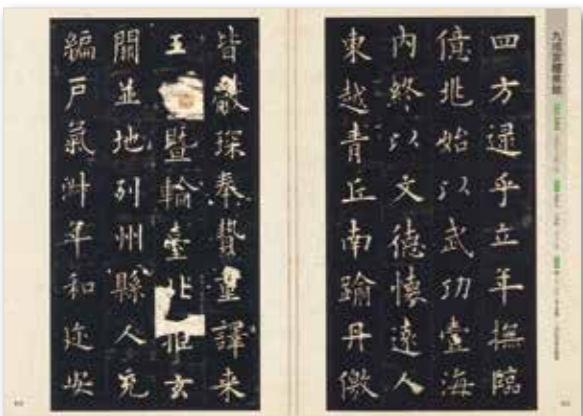 九成宮醴泉銘
四方逮乎立年撫臨
億兆始以武功壹海
內終以文德懷遠人
東越青丘南踰丹儌
皆獻琛奉贄重譯来
王暨輪臺北拒玄
闕並地列州縣人充
編戶氣淑年和迩安